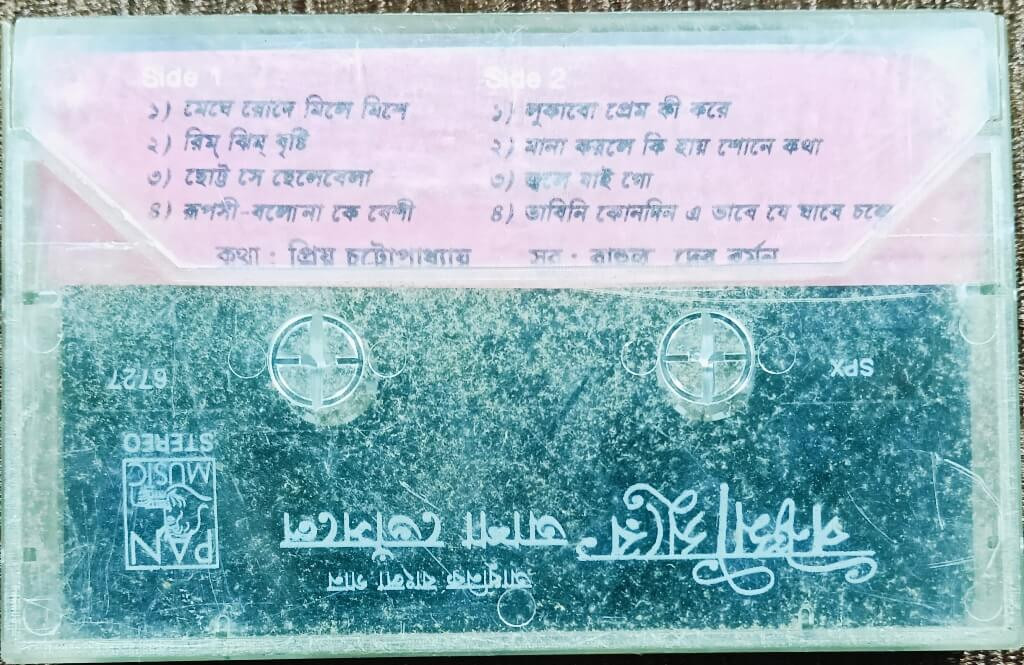 Side 1
১) মেঘে রোদে মিলে মিশে
২) রিম্ ঝিম্ বৃষ্টি
৩) ছোট্ট সে ছেলেবেলা
৪) রূপসী-বলোনা কে বেশী
Side 2
১) লুকাবো প্রেম কী করে
২) মানা করলে কি হায় শোনে কথা
৩) যাই গো
৪) ভাবিনি কোনদিন এ ভাবে যে যাবে চলে
কথা : প্রিয় চট্টোপাধ্যায় সুর : রাহুল দেব বর্মন
আধুনিক বাংলা গান
আশা ভোঁসলে
PAN
MUSIC
STEREO
SPX 6727